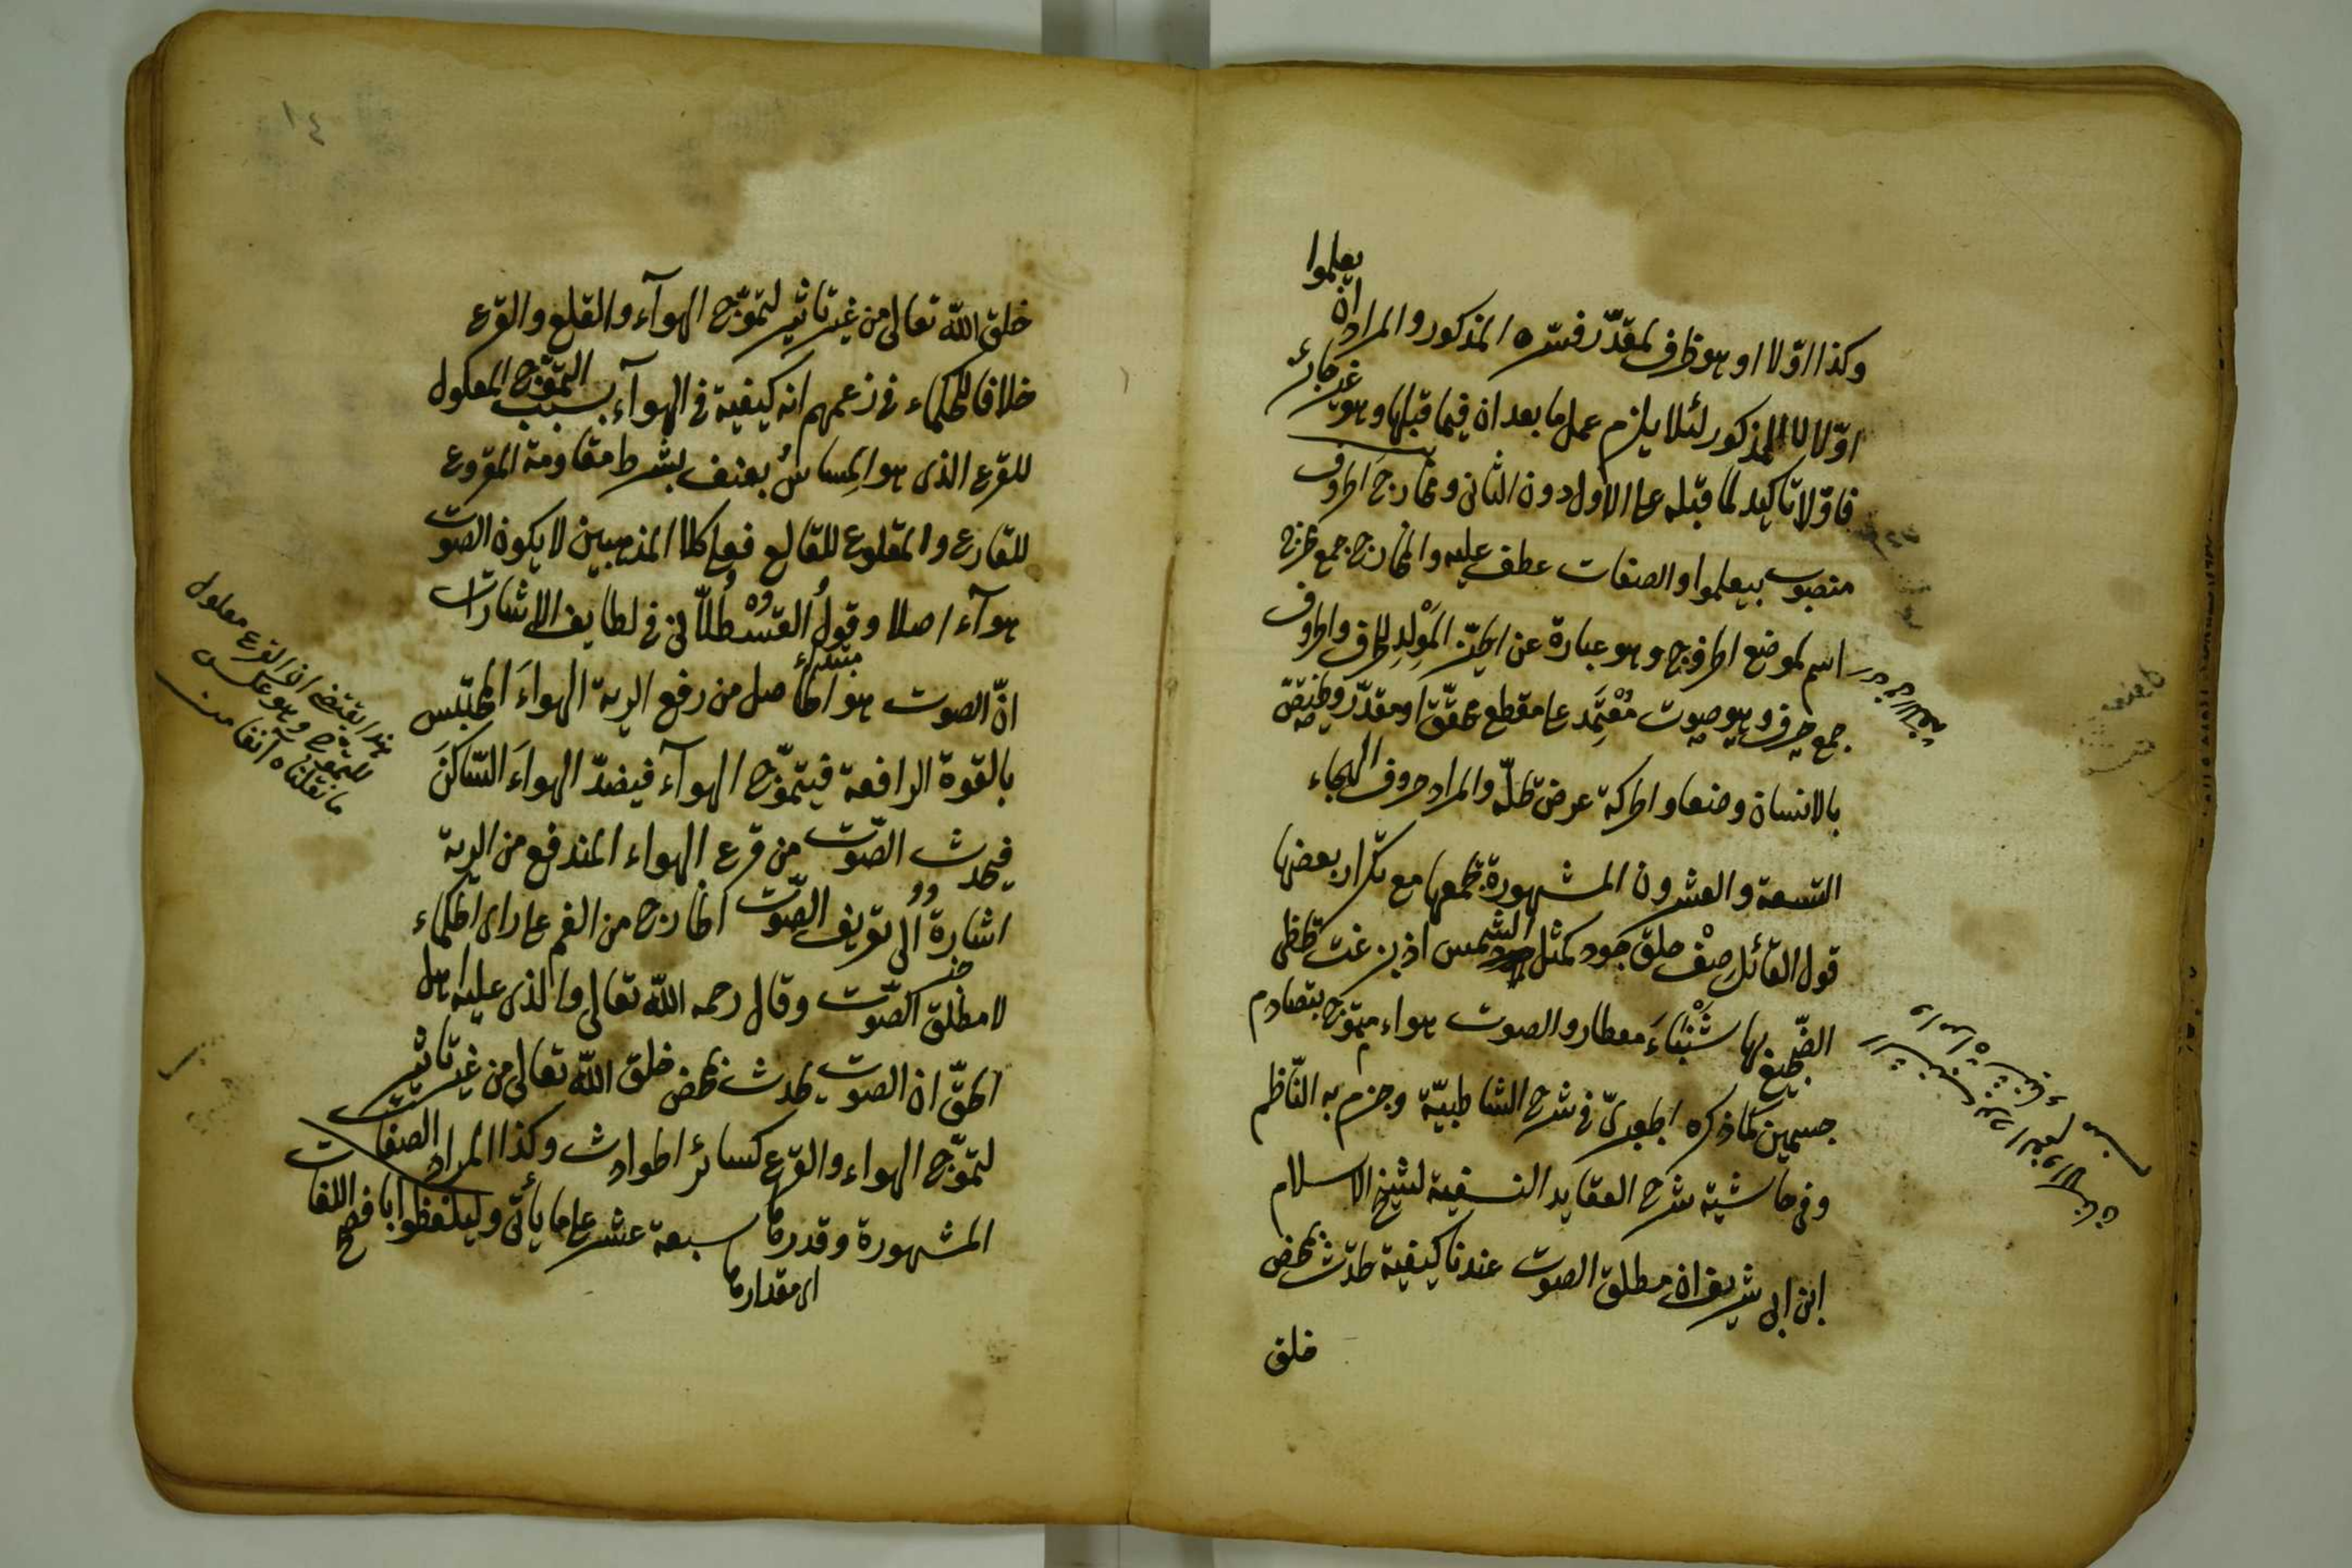 وكذا اوّلا او هو ظرف لمقدّر فسّره المذكور والمراد ان يعلموا
اوّلا لا للمذكور لئلا يلزم عمل ما بعد ان فيما قبلها وهو غير جائز
فاوّلا تاكيد لما قبله على الاول دون الثانى ومخارج الحروف
منصوب بيعلموا والصفات عطف عليه والمخارج جمع مخرج
اسم لموضع الخروج وهو عبارة عن الحيّز المولد للحرف والحروف
جمع حرف وهو صوت مُعْتَمِد على مقطع محقّق او مقدّر ويختصّ
بالانسان وضعا والحركة عرض تحلّه والمراد حروف الهجاء
التسعة والعشرون المشهورة يجمعها مع تكرار بعضها
قول القائل صِفْ خلق خود كمثل الشمس اذ بزغت يحظى
الضّجيع بها شَنْبَاءَ معطار والصوت هواء يتموّج بتصادم
جسمين كما ذكره الجعبرىّ فى شرح الشاطبيّة وجزم به النّاظم
وفى حاشية شرح العقايد النسفية لشيخ الاسلام
ابن ابى شريف ان مطلق الصوت عندنا كيفية تحدث بمحض
خلق
١٤
خلق الله تعالى من غير تاثير لتموّج الهوآء والقلع والقرع
خلافا للحكماء فى زعمهم انه كيفية فى الهوآء بسبب التموّج المعلول
للقرع الذى هو امساسٌ بعنف بشرط مقاومة المقروع
للقارع والمقلوع للقالع فعلى كلا المذهبين لا يكون الصوت
هوآء اصلا وقولُ القَسْطُلاّنى فى لطايف الاشارات
مبتداء
انّ الصوت هو الحاصل من رفع الرية الهواءَ المحتبس
بالقوة الرافعة فيتموّج الهوآء فيضدّ الهواءَ السّاكنَ
فيحدث الصّوت من قرع الهواء المندفع من الرية
اشارة الى تعريف الصّوت الخارج من الفم على راى الحكماء
خبر
لا مطلق الصّوت وقال رحمه الله تعالى والذى عليه اهل
الحقّ ان الصوت يحدث بمحض خلق الله تعالى من غير تاثير
لتموّج الهواء والقرع كسائر الحوادث وكذا المراد الصفات
المشهورة وقدرها سبعة عشر على ما يأتى وليلفظوا بافصح اللغات
اى مقدارها
هذا يقتضى ان القرع معلول
للتموّج وهو عكس
ما نقلناه آنفا